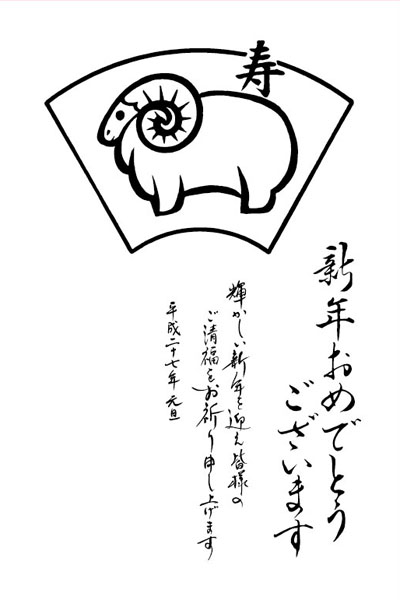 寿
新年おめでとう
ございます
輝かしい新年を迎え皆様の
ご清福をお祈り申し上げます
平成二十七年 元旦